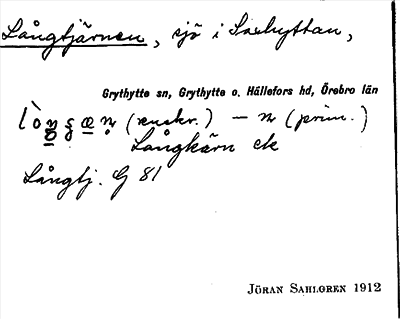 Långtjärnen, sjö i Saxhyttan,
Grythytte sn, Grythytte o. Hällefors hd, Örebro län
(renskr.) — n (prim.)
Långkärn ek
Långtj. G 81
JÖRAN SAHLGREN 1912